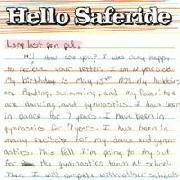 Hello Saferide
Long lost pen pal,
Hi! How are you? I was very happy
to receive your letter. I am 14 years old.
My birthday is May 13th 1979. My hobbies
are Reading, swimming, and my favorites
are dancing and gymnastics. I have been
in dance for 7 years. I have been in
gymnastics for 7 years. I have been in
many recitals for my dance and gym-
nastics. This fall I'm going to try out
for the gymnastics team at school.
Then I will compete with other schools